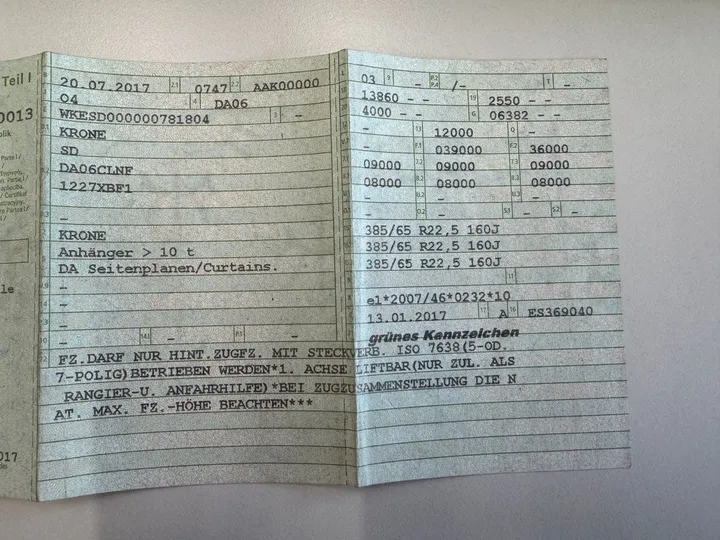 Teil I
0013
20.07.2017 2.1 0747 2.2 AAK00000
04 4 DA06
WKESD000000781804 3 -
KRONE -
SD
DA06CLNF
1227XBF1
-
KRONE
Anhänger > 10 t
DA Seitenplanen/Curtains.
-
-
-
- 14.1 - P.3 -
03 - P.2 P.4 /- T -
13860 - - 19 2550 - -
4000 - - G 06382 - -
- 13 12000 Q -
- F.1 039000 F.2 36000
09000 7.2 09000 7.3 09000
08000 8.2 08000 8.3 08000
- U.2 - S.1 - S.2 -
385/65 R22,5 160J
385/65 R22,5 160J
385/65 R22,5 160J
- 11
-
e1*2007/46*0232*10
13.01.2017 17 A 16 ES369040
grünes Kennzeichen
FZ.DARF NUR HINT.ZUGFZ. MIT STECKVERB. ISO 7638(5-OD.
7-POLIG)BETRIEBEN WERDEN*1. ACHSE LIFTBAR(NUR ZUL. ALS
RANGIER-U. ANFAHRHILFE)*BEI ZUGZUSAMMENSTELLUNG DIE N
AT. MAX. FZ.-HÖHE BEACHTEN***
017